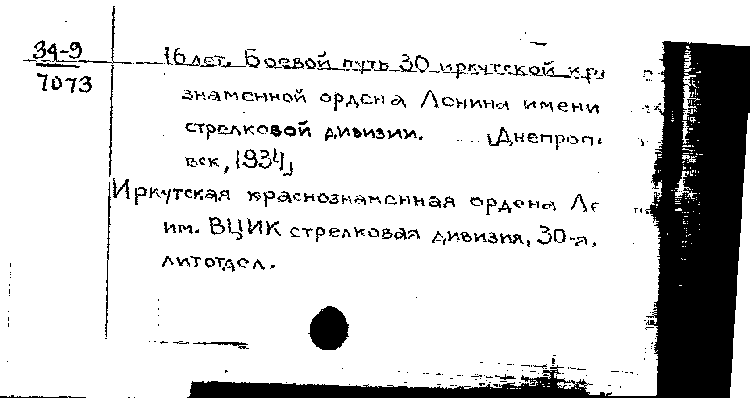 34-9
7073
16 лет. Боевой путь 30 иркутской кра
знаменной ордена Ленина имени
стрелковой дивизии. [Днепроп
вск, 1934]
Иркутская краснознаменная ордена Ле
им. ВЦИК стрелковая дивизия, 30-я.
литотдел.